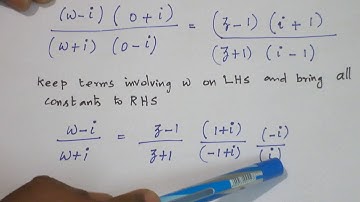 (w-i) (0+i) / (w+i) (0-i) = (z-1) (i+1) / (z+1) (i-1)
keep terms involving w on LHS and bring all
constants to RHS
w-i / w+i = z-1 / z+1 (1+i) / (-1+i) (-i) / (i)